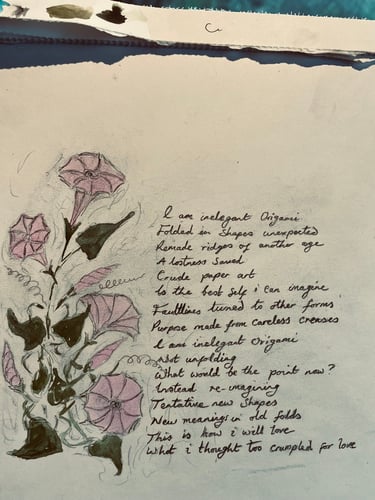 I am inelegant Origami
Folded in Shapes unexpected
Remade ridges of another age
A lostness Saved
Crude paper art
Is the best self i can imagine
Faultlines turned to other forms
Purpose made from careless creases
I am inelegant Origami
Not unfolding
What would be the point now?
Instead re-imagining
Tentative new Shapes
New meanings in old folds
This is how i will love
What i thought too crumpled for love